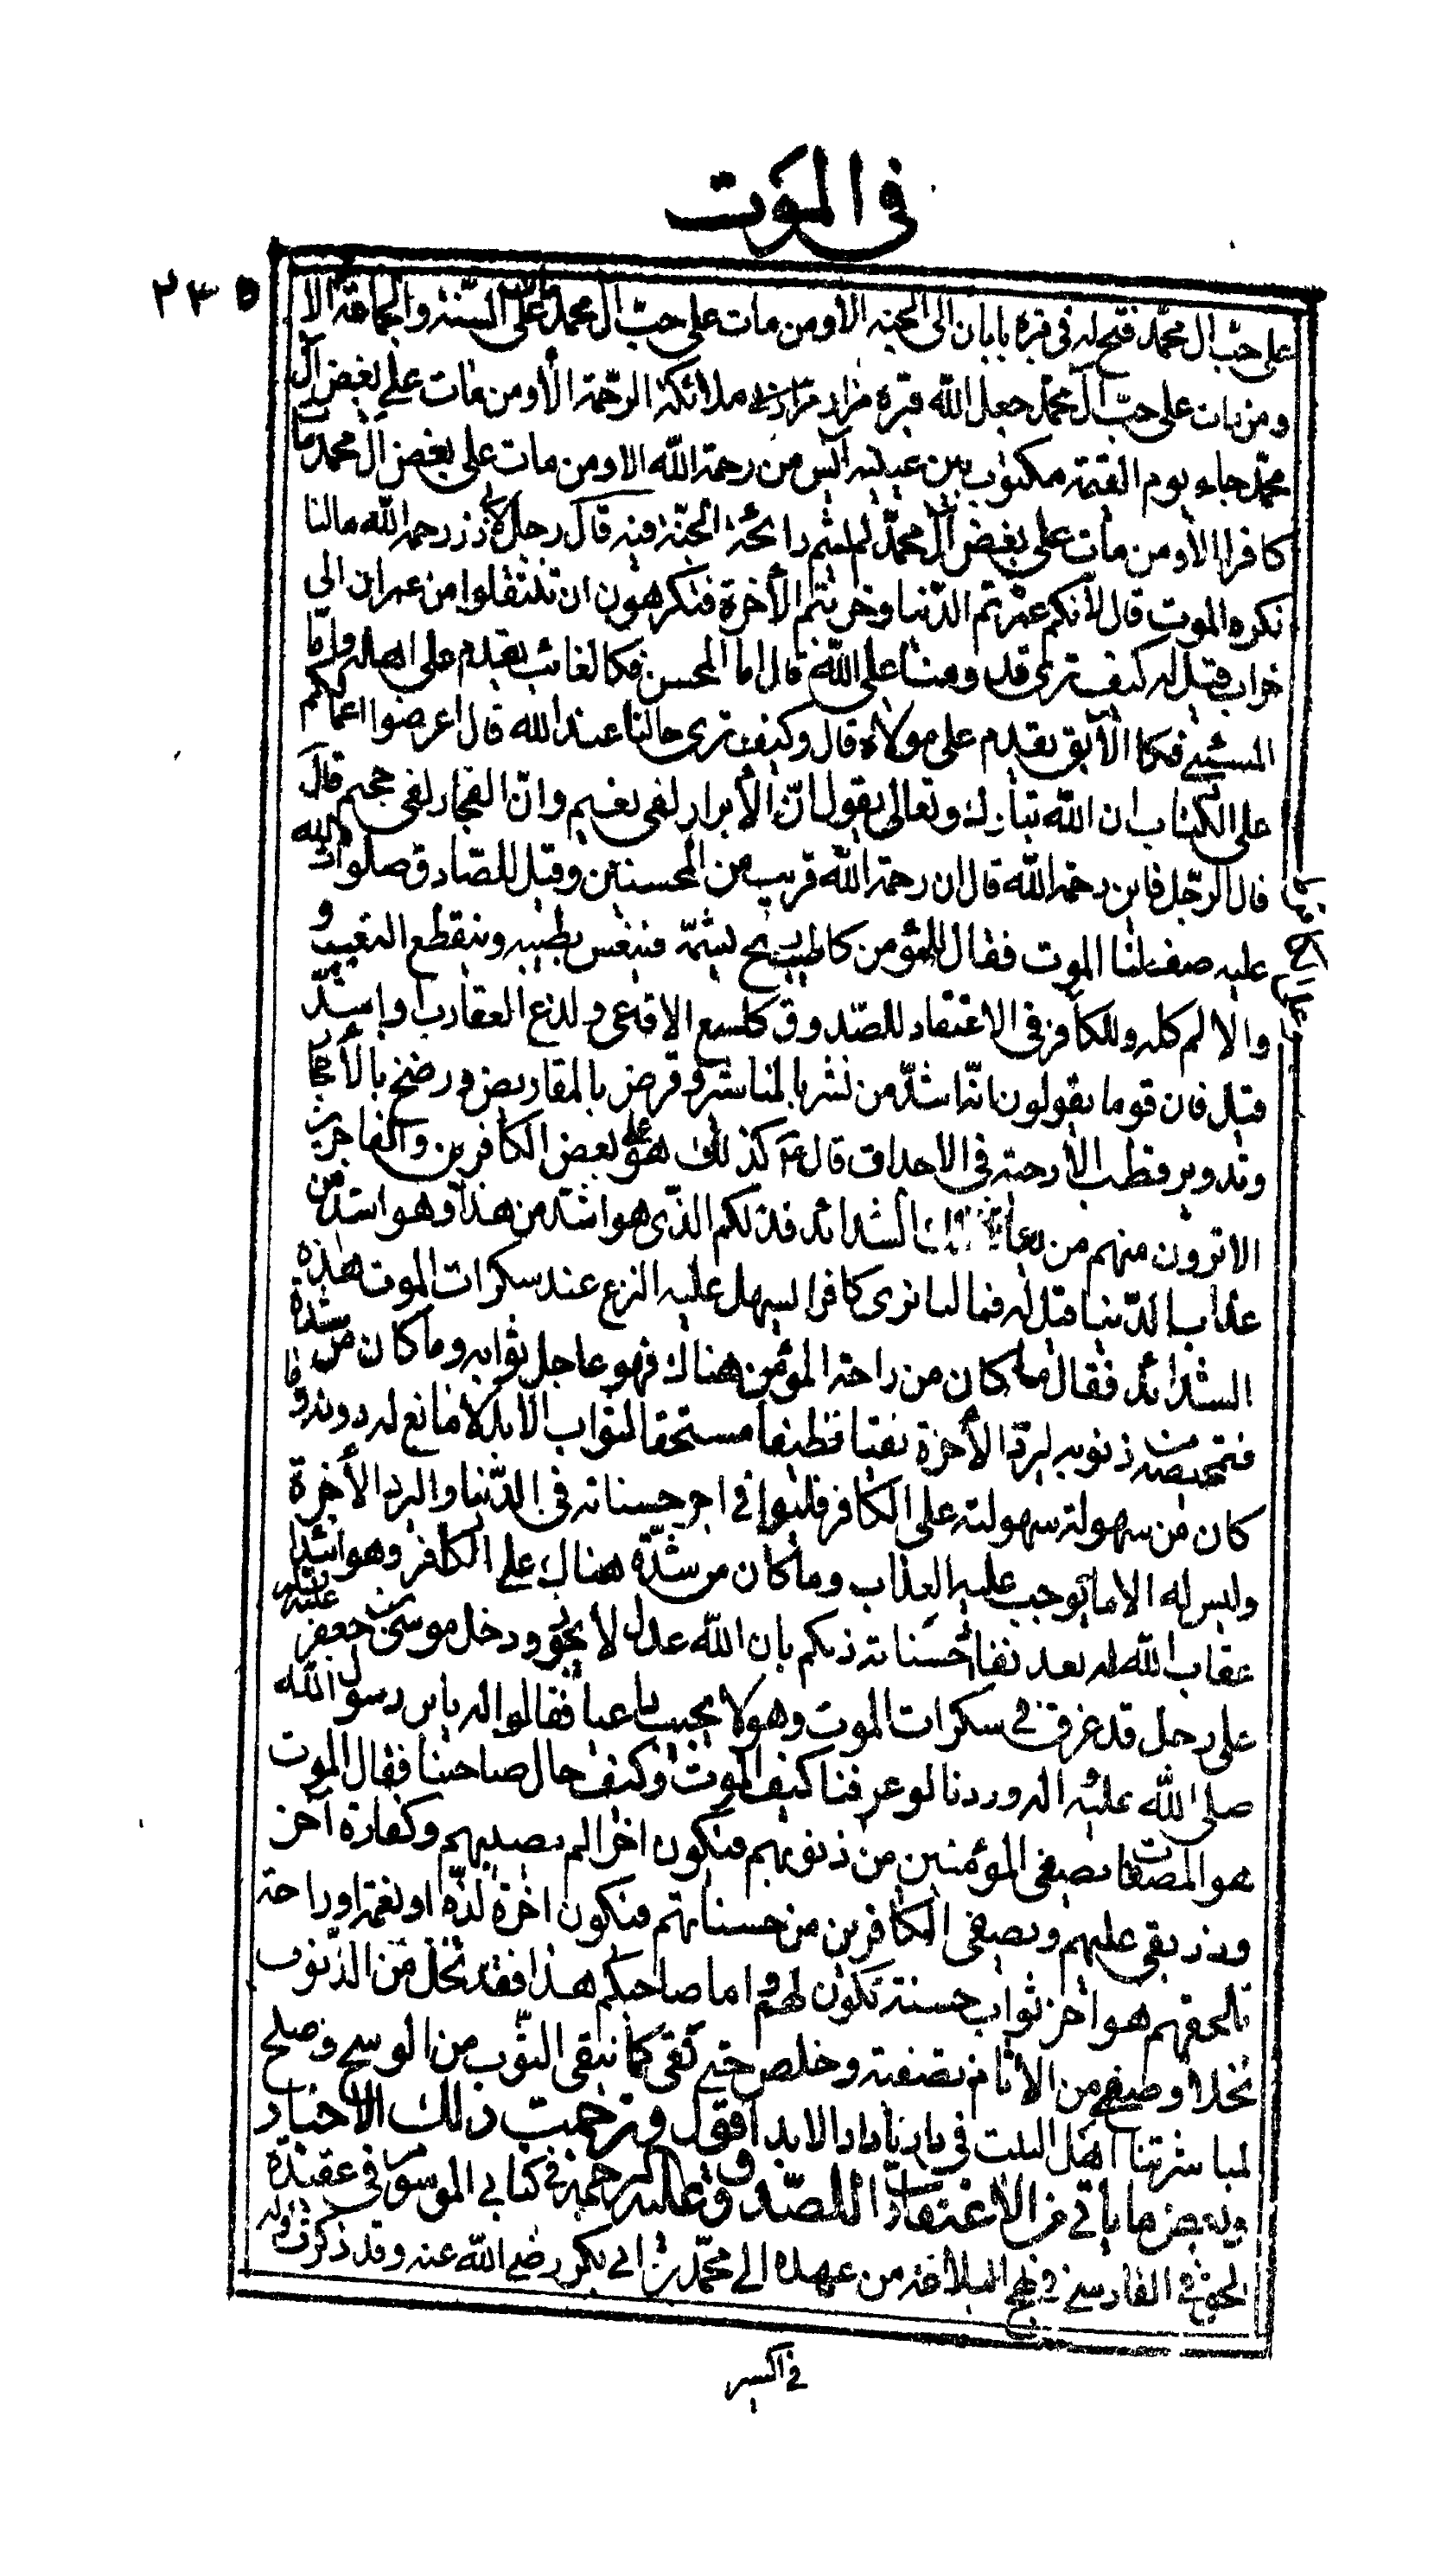 فى الموت
٢٣٥
على حب ال محمد فتح له فى قبره بابان الى الجنه الا ومن مات على حب ال محمد مات على السنة والجماعة الا
ومن مات على حب آل محمد جعل الله قبره مزار ملائكة الرحمة الا ومن مات على بغض آل
محمد جاء يوم القيمة مكتوب بين عينيه آيس من رحمة الله الا ومن مات على بغض آل محمد مات
كافرا الا ومن مات على بغض آل محمد لم يشم رائحة الجنة فيه قال رجل لابى ذر رحمه الله مالنا
نكره الموت قال لأنكم عمرتم الدنيا وخربتم الأخرة فتكرهون ان تنتقلوا من عمران الى
خراب قيل له كيف ترى قدومنا على الله قال اما المحسن فكالغائب يقدم على اهله واما
المسيئ فكالآبق يقدم على مولاه قال وكيف ترى حالنا عند الله قال اعرضوا اعمالكم
على الكتاب ان الله تبارك وتعالى يقول ان الأبرار لفى نعيم وان الفجار لفى جحيم قال
قال الرجل فاين رحمة الله قال ان رحمة الله قريب من المحسنين وقيل للصادق صلوات الله
عليه صف لنا الموت فقال للمؤمن كاطيب ريح يشمه فينعس بطيبه وينقطع التعب و
والالم كله وللكافر فى الاعتقاد للصدوق كلسع الافعى ولدغ العقارب واشد
قيل فان قوما يقولون انه اشد من نشر بالمناشير وقرض بالمقاريض ورضخ بالأحجار
وتدوير قطب الأرحية فى الاحداق قال كذلك هو على بعض الكافرين والفاجرين
الا ترون منهم من يعاين تلك الشدائد فذلكم الذى هو اشد من هذا وهو اشد من
عذاب الدنيا قيل له فما لنا نرى كافرا يسهل عليه النزع عند سكرات الموت هذه
الشدائد فقال ما كان من راحة المؤمن هناك فهو عاجل ثوابه وما كان من شدة
فتمحيصه من ذنوبه ليرد الأخرة نقيا نظيفا مستحقا لثواب الابد لا مانع له دونه وما
كان من سهولة سهولته على الكافر فليوفى اجر حسناته فى الدنيا وليرد الأخرة
وليس له الا ما يوجب عليه العذاب وما كان من شدة هناك على الكافر وهو ابتداء
عقاب الله له بعد نفاد حسناته ذلكم بان الله عدل لا يجور ودخل موسى بن جعفر عليه
على رجل قد غرق فى سكرات الموت وهو لا يجيب داعيا فقالوا له يابن رسول الله
صلى الله عليه واله وددنا لو عرفنا كيف الموت وكيف حال صاحبنا فقال الموت
هو المصفاة يصفى المؤمنين من ذنوبهم فيكون اخر الم يصيبهم وكفارة آخر
وزر بقى عليهم ويصفى الكافرين من حسناتهم فيكون اخر لذة او نعمة او راحة
تلحقهم هو اخر ثواب حسنة تكون لهم واما صاحبكم هذا فقد نخل من الذنوب
نخلا وصفى من الاثام تصفية وخلص حتى نقى كما ينقى الثوب من الوسخ وصلح
لمباشرتنا اهل البيت فى دارنا دار الابد اقول وترجمت ذلك الاخبار
وبعض ما ياتى من الاعتقادات للصدوق عليه الرحمة فى كتابى الموسوم فى عقيدة
الحق فى الفارسى فى نهج البلاغة من عهده الى محمد بن ابى بكر رضى الله عنه وقد ذكرت
فى اكسير